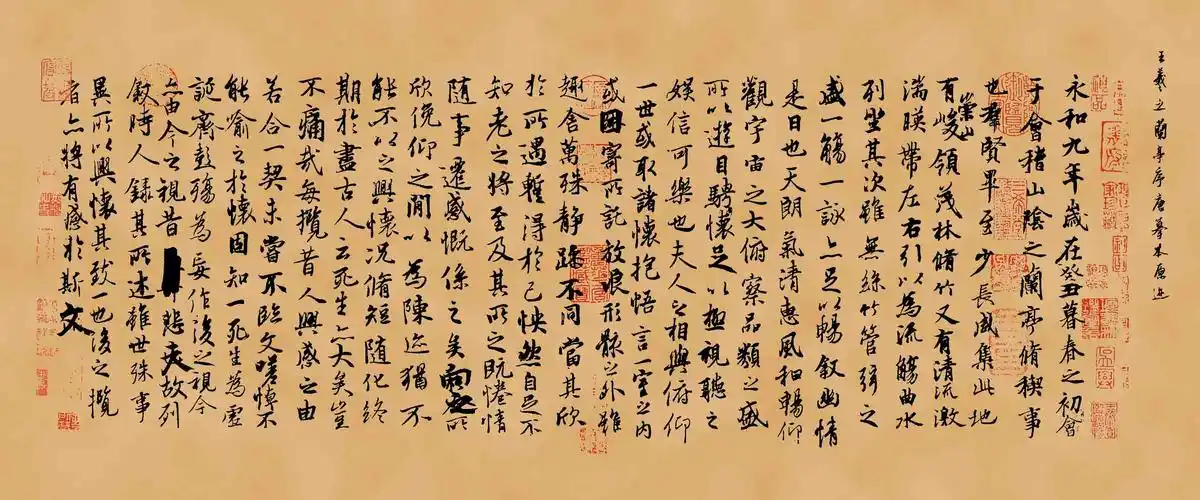 王羲之蘭亭序唐摹本
永和九年歲在癸丑暮春之初會
于會稽山陰之蘭亭脩禊事
也羣賢畢至少長咸集此地
有崇山峻領茂林脩竹又有清流激
湍暎帶左右引以為流觴曲水
列坐其次雖無絲竹管弦之
盛一觴一詠亦足以暢敘幽情
是日也天朗氣清惠風和暢仰
觀宇宙之大俯察品類之盛
所以遊目騁懷足以極視聽之
娛信可樂也夫人之相與俯仰
一世或取諸懷抱悟言一室之內
或因寄所託放浪形骸之外雖
趣舍萬殊靜躁不同當其欣
於所遇暫得於己怏然自足不
知老之將至及其所之既惓情
隨事遷感慨係之矣向之所
欣俛仰之間以為陳迹猶不
能不以之興懷況脩短隨化終
期於盡古人云死生亦大矣豈
不痛哉每攬昔人興感之由
若合一契未嘗不臨文嗟悼不
能喻之於懷固知一死生為虛
誕齊彭殤為妄作後之視今
亦由今之視昔悲夫故列
敘時人錄其所述雖世殊事
異所以興懷其致一也後之攬
者亦將有感於斯文